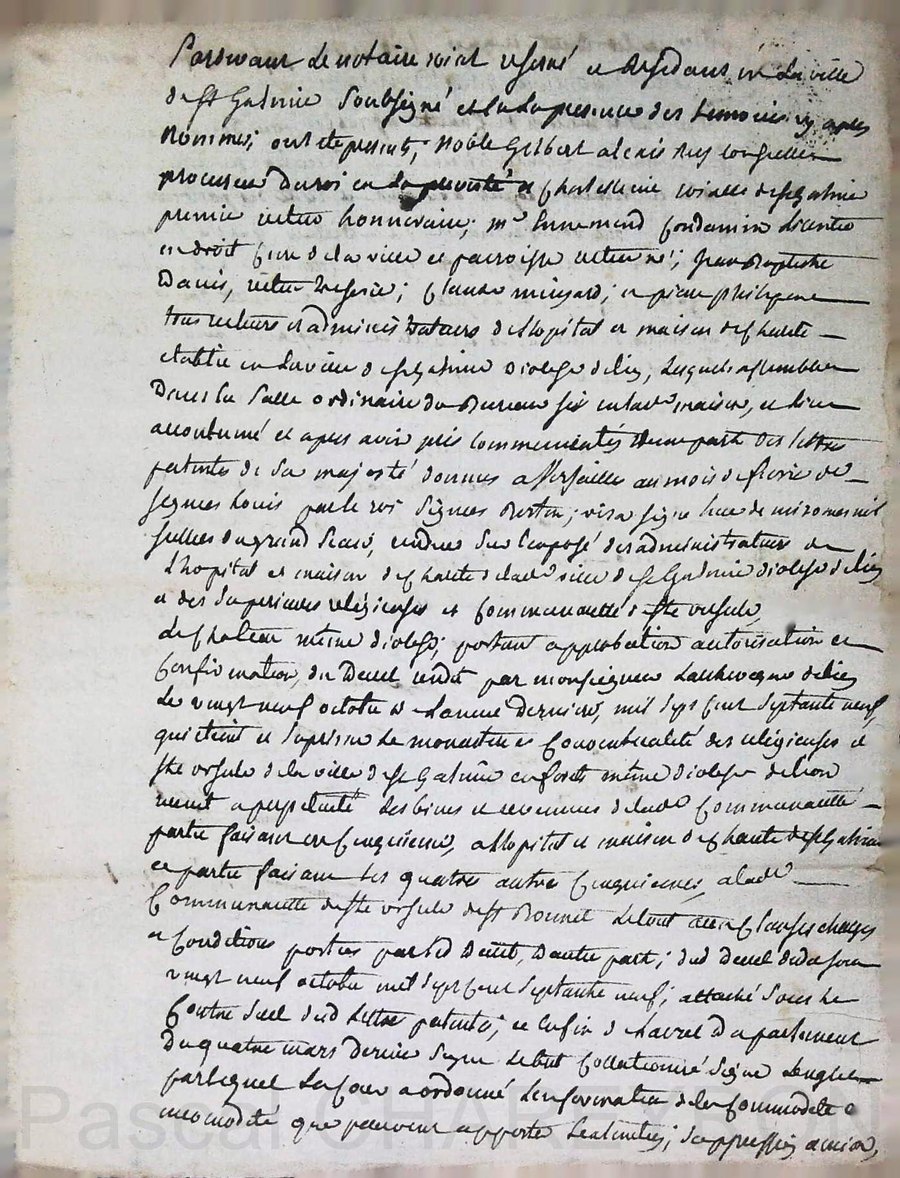 Pardevant le notaire roial reservé et Residant en la ville
de st Galmier soubsigné et en la presence des temoins cy apres
Nommes; ont eté presents; Noble Gilbert alexis Rey conseiller
procureur du roi en la prevoté et chatellenie roialle de st Galmier
premier recteur honnoraire; mre Ennemond Condamin licentié
en droit Curé de la ville et parroisse recteur né; Jean Baptiste
David, recteur tresorier; Claude ; et pierre
tous recteurs et administrateurs de l'hopital et maison de charité
etablie en la ville de st Galmier diocese de lion, lesquels assemblés
Dans la Salle ordinaire du Bureau sis en lade maison, et lieu
accoutumé et apres avoir pris communication d'une part des lettres
patentes de Sa majesté donnees a Versailles au mois de fevrier der
signees Louis par le roi Signees Bertin; visa signé hue de miromenil
scellees du grand Sceau, rendues sur l'exposé des administrateurs de
L'hopital et maison de charité de lade ville de st Galmier diocese de lion
et des superieures religieuses et Communauté de ste ursule,
meme diocese; portant approbation autorisation et
Confirmation, du Decret rendu par monseigneur l'archeveque de lion
Le vingt neuf octobre de l'année derniere, mil sept cent septante neuf,
qui eteint et suprime le monastere et Conventualité des religieuses de
ste ursule de la ville de st Galmier en forets même diocese de lion
reunit a perpetuité les biens et revenus de lade Communauté
partie faisant un Cinquieme, a l'hopital et maison de charité de st Galmier
et partie faisant les quatre autres Cinquiemes, a lade
Communauté de ste ursule de st Bonnet le tout aux Clauses charges
et Conditions portées par led Decret, D'autre part; dud Decret dud jour
vingt neuf octobre mil sept cent septante neuf; attaché sous le
Contre scel desd Lettres patentes; et enfin de l'arret du parlement
Du quatre mars dernier signé Lebret Collationné Signé
par lequel La Cour a ordonné L'information de la Commodité et
incomodité que peuvent apporter l'extinction, suppression et union,
Pascal CHAREYRON